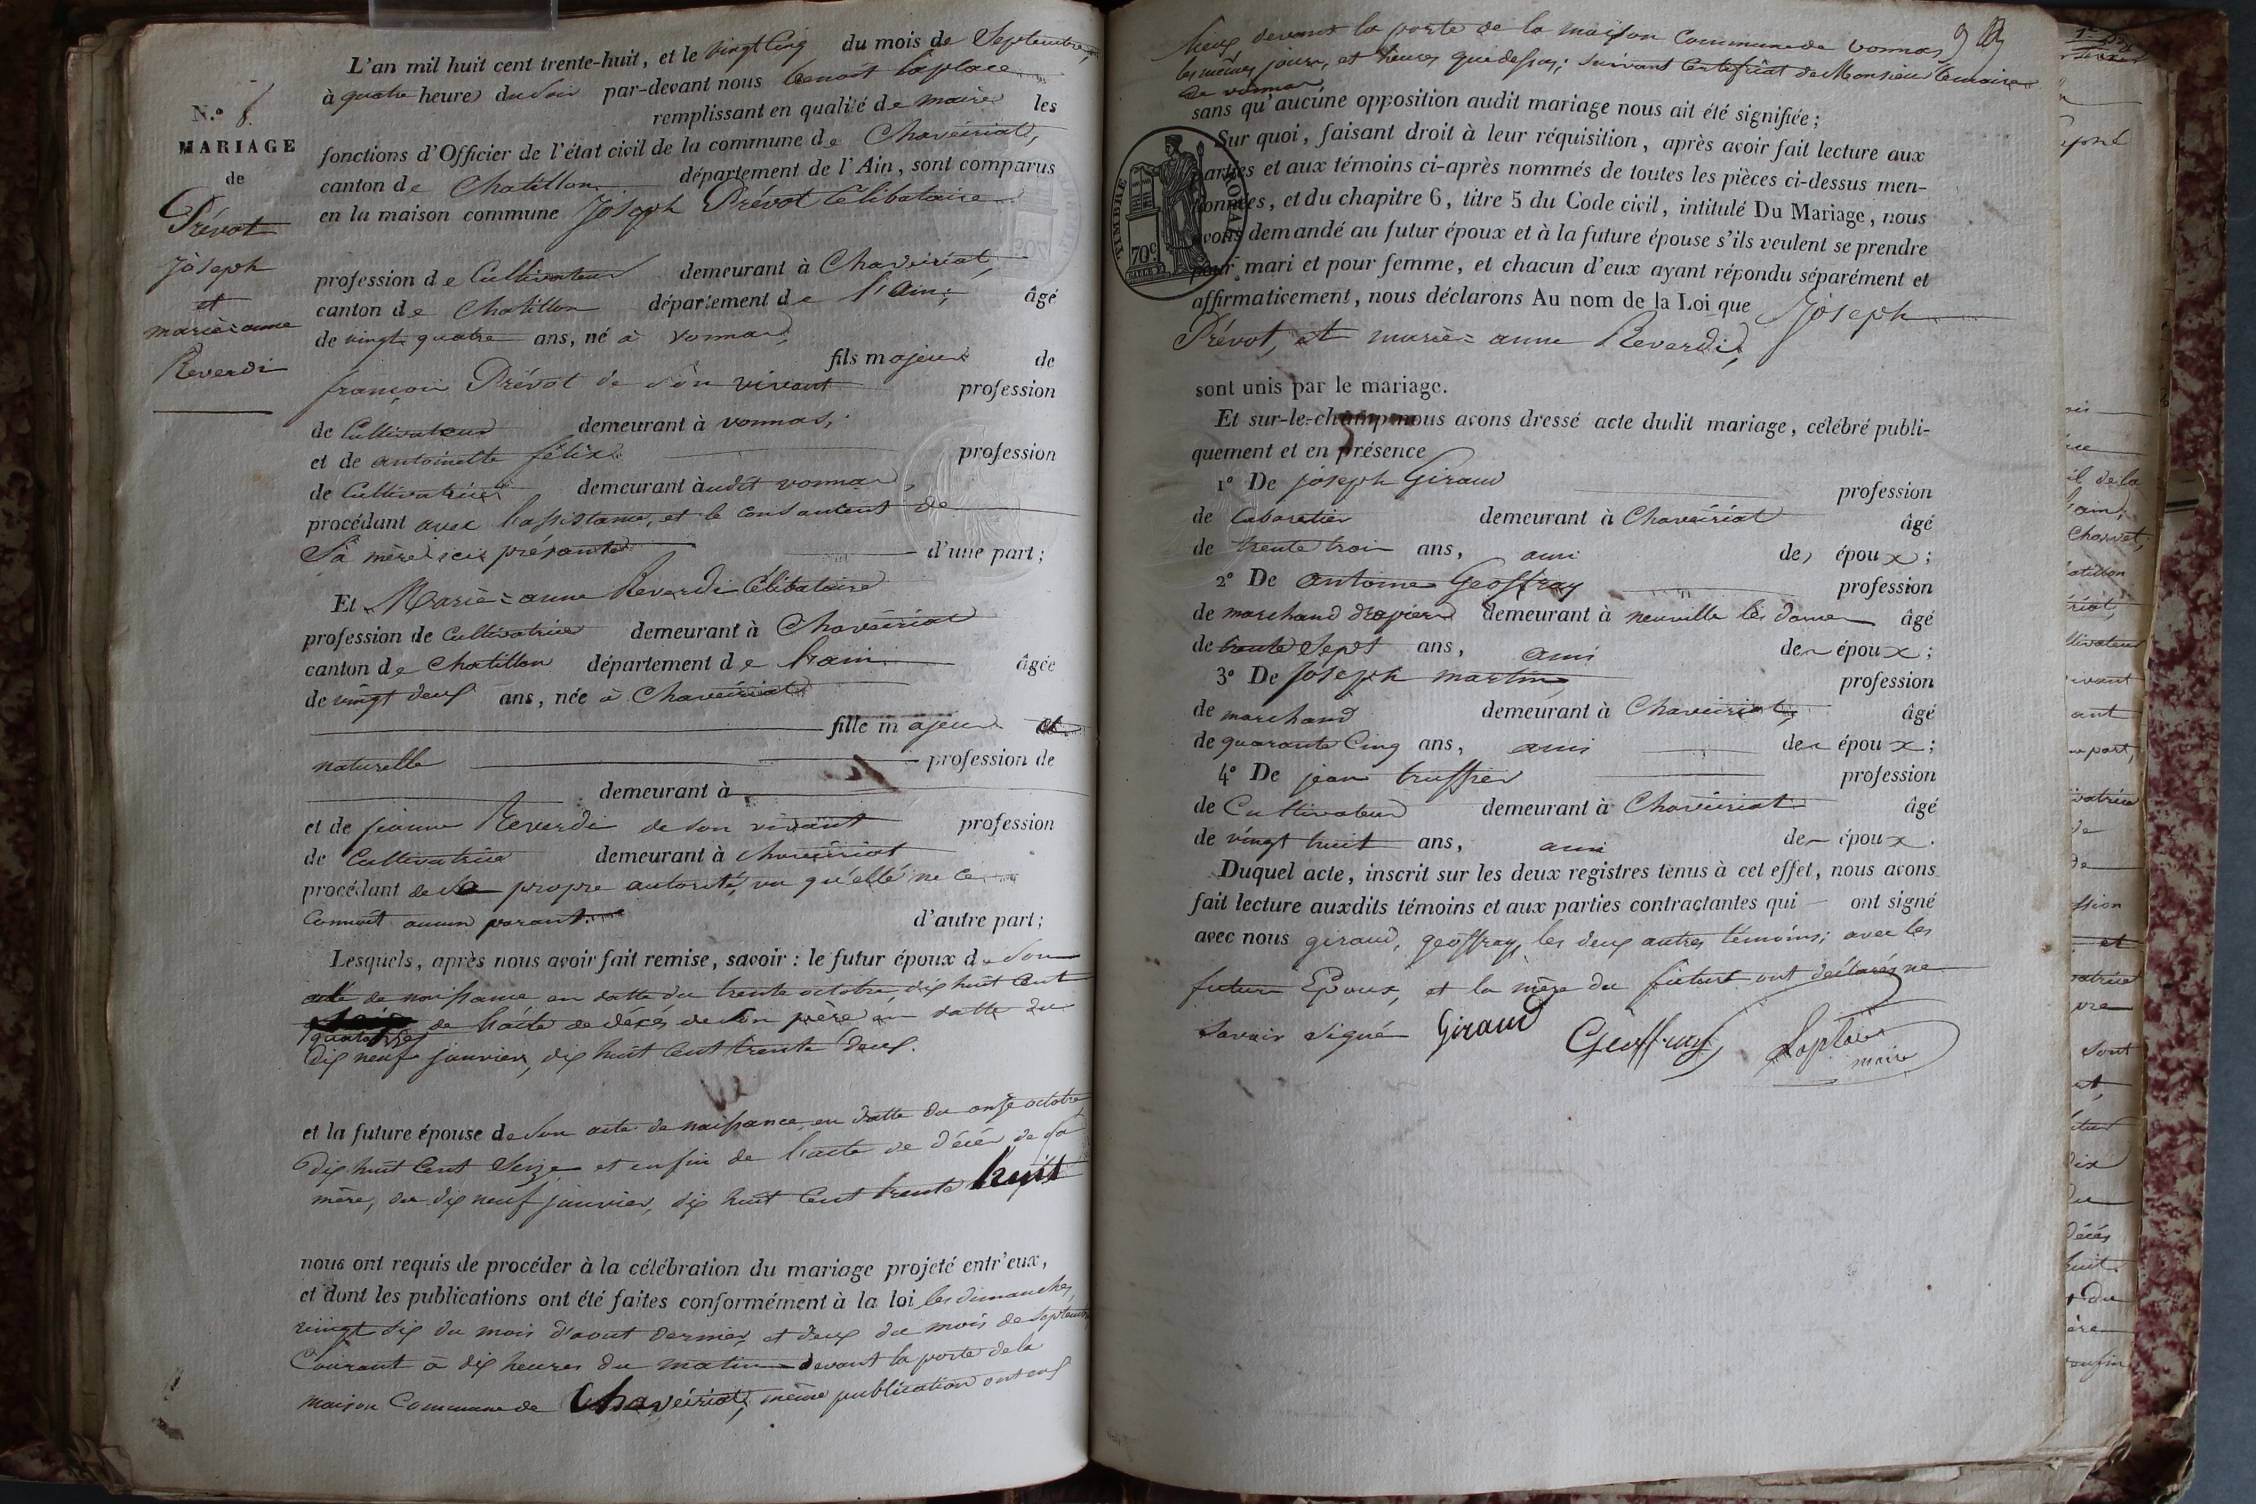 N.º 8.
MARIAGE
de
Prévot
Joseph
et
marie=anne
Reverdi
L'an mil huit cent trente-huit, et le vingt Cinq du mois de Septembre,
à quatre heures du Soir par-devant nous benoit laplace
remplissant en qualité de maire les
fonctions d'Officier de l'état civil de la commune de Chaveïriat,
canton de Chatillon département de l'Ain, sont comparus
en la maison commune Joseph Prévot Célibataire
profession de Cultivateur demeurant à Chaveiriat
canton de Chatillon département de l'ain; âgé
de vingt quatre ans, né à vonnas,
fils majeur de
françois Prévot de son vivant profession
de Cultivateur demeurant à vonnas;
et de antoinette félix profession
de Cultivatrice demeurant audit vonnas,
procédant avec l'assistance, et le consantent de
Sa mère ici présante d'une part;
Et Marie=anne Reverdi Célibataire
profession de Cultivatrice demeurant à Chaveïriat
canton de Chatillon département de l'ain âgée
de vingt deux ans, née à Chaveïriat
fille majeure et
naturelle profession de
demeurant à
et de jeanne Reverdi de son vivant profession
de Cultivatrice demeurant à chaveïriat
procédant de sa propre autorité, vu qu'elle ne ce
connoit aucun parant. d'autre part;
Lesquels, après nous avoir fait remise, savoir: le futur époux de Son
acte de naissance en datte du trente octobre, dix huit Cent
quatorze de l'acte de décés de son père en datte du
dix neuf janvier, dix huit Cent trente deux.
et la future épouse de Son acte de naissance en datte du onze octobre
dix huit Cent Seize et enfin de l'acte de décés de sa
mère, du dix neuf janvier, dix huit Cent trente huit
nous ont requis de procéder à la célébration du mariage projeté entr'eux,
et dont les publications ont été faites conformément à la loi les dimanches,
vingt six du mois d'aout dernier, et deux du mois de septembre
Courant à dix heures du matin devant la porte de la
maison Commune de Chaveïriat, même publication ont eus
lieux, devant la porte de la maison Commune de vonnas,
les mêmes jours, et heures que dessus; suivant Certefiicat de Monsieur le maire
de vonnas
sans qu'aucune opposition audit mariage nous ait été signifiée;
Sur quoi, faisant droit à leur réquisition, après avoir fait lecture aux
parties et aux témoins ci-après nommés de toutes les pièces ci-dessus men-
tionnées, et du chapitre 6, titre 5 du Code civil, intitulé Du Mariage, nous
avons demandé au futur époux et à la future épouse s'ils veulent se prendre
pour mari et pour femme, et chacun d'eux ayant répondu séparément et
affirmativement, nous déclarons Au nom de la Loi que Joseph
Prévot, et marie=anne Reverdi,
sont unis par le mariage.
Et sur-le-champ nous avons dressé acte dudit mariage, célébré publi-
quement et en présence
1º De joseph Giraud profession
de Cabaretier demeurant à Chaveïriat âgé
de trente trois ans, ami des époux;
2º De antoine Geoffray profession
de marchand drapier demeurant à neuville les dames âgé
de trente Sept ans, ami des époux;
3º De joseph martin profession
de marchand demeurant à Chaveïriat, âgé
de quarante Cinq ans, ami des époux;
4º De jean truffier profession
de Cultivateur demeurant à Chaveïriat âgé
de vingt huit ans, ami des époux.
Duquel acte, inscrit sur les deux registres tenus à cet effet, nous avons
fait lecture auxdits témoins et aux parties contractantes qui ont signé
avec nous giraud, geoffray, les deux autres témoins; avec les
futurs Epoux, et la mère du futur ont déclarés ne
savoir signé Giraud Geoffray Laplace
maire
TIMBRE ROYAL
70 c